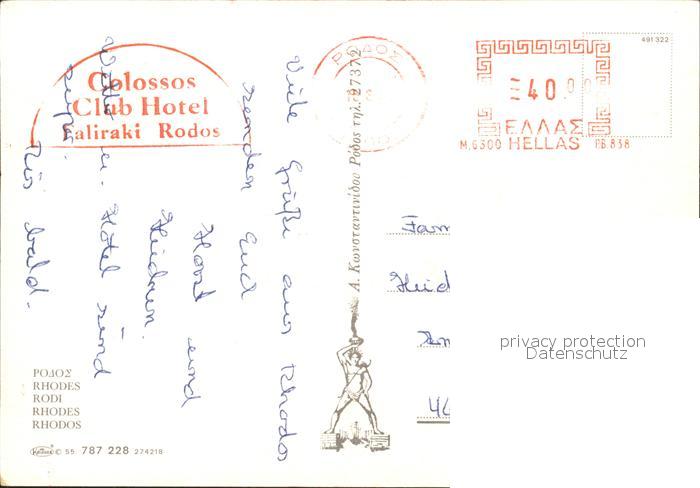 Colossos
Club Hotel
Faliraki Rodos
ΡΟΔΟΣ
40.00
ΕΛΛΑΣ
HELLAS
M.6300
P.B.838
491 322
Viele Grüße aus Rhodos
senden Euch
Horst und
Heidrun.
Wetter u. Hotel sind
super.
Bis bald.
Α. Κωνσταντινίδου Ρόδος τηλ. 27372
Fam
Heid
privacy protection
Datenschutz
ΡΟΔΟΣ
RHODES
RODI
RHODES
RHODOS
© 55 787 228 274218